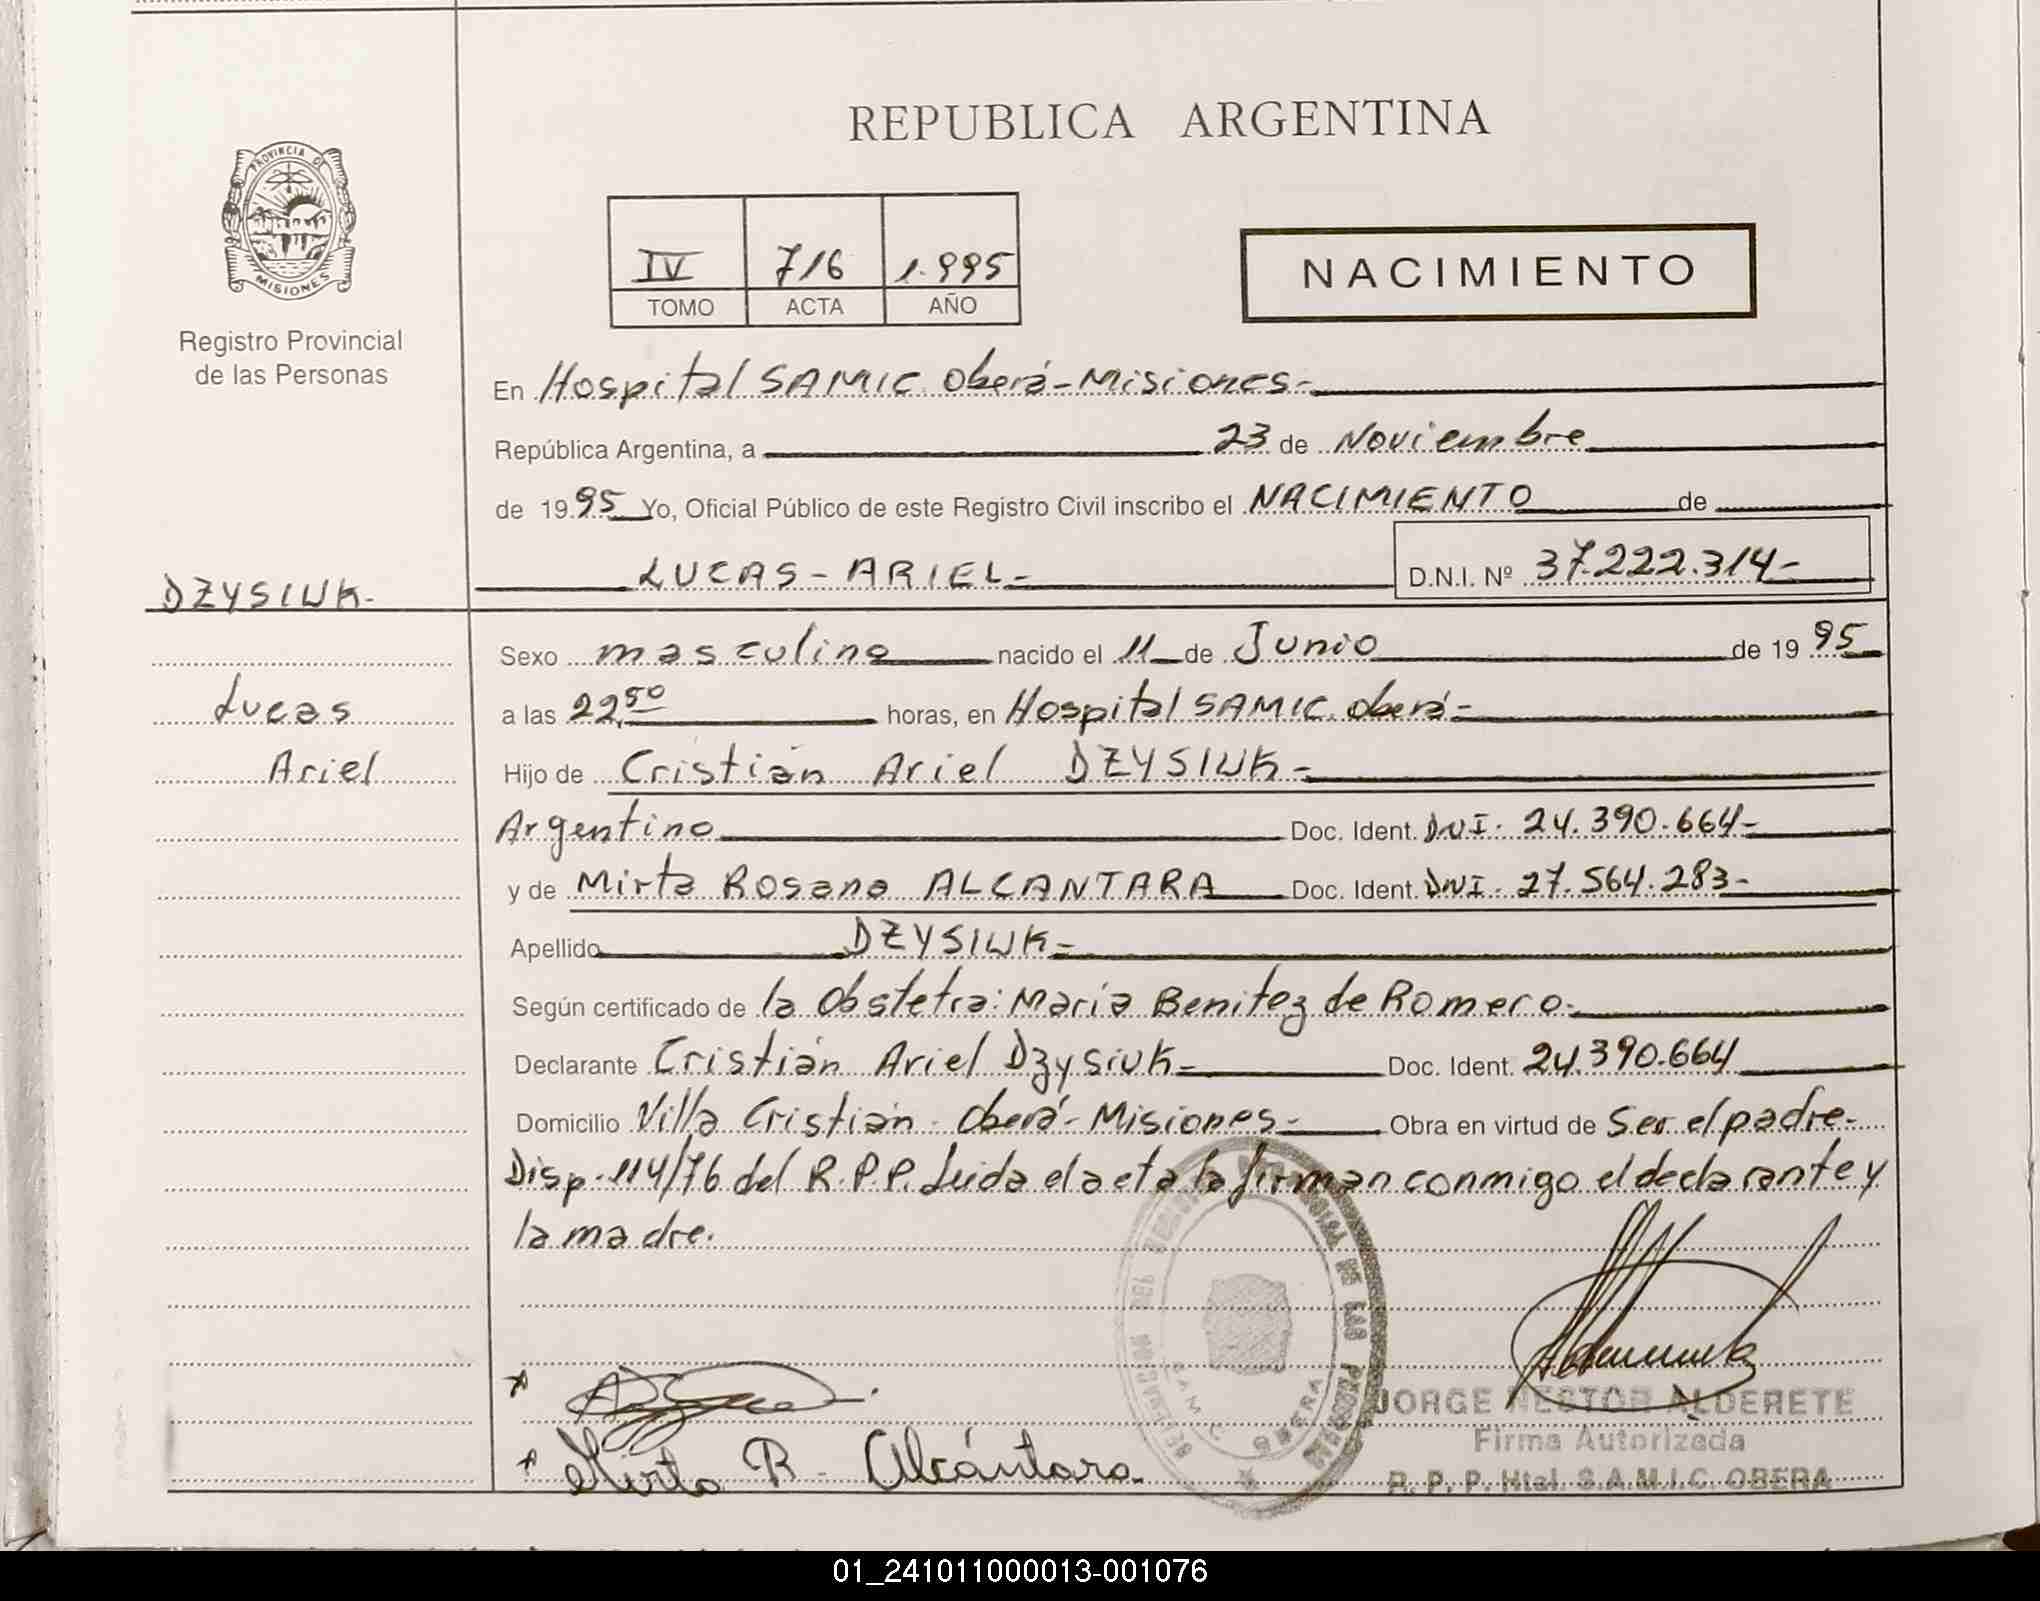 REPUBLICA ARGENTINA
PROVINCIA DE
MISIONES
Registro Provincial
de las Personas
IV 716 1.995
TOMO ACTA AÑO
NACIMIENTO
En Hospital SAMIC. Oberá-Misiones-
República Argentina, a 23 de Noviembre
de 1995 Yo, Oficial Público de este Registro Civil inscribo el NACIMIENTO de
LUCAS-ARIEL- D.N.I. Nº 37.222.314-
DZYSIUK-
Lucas
Ariel
Sexo masculino nacido el 11 de Junio de 1995
a las 22,50 horas, en Hospital SAMIC. Oberá-
Hijo de Cristián Ariel DZYSIUK-
Argentino Doc. Ident. DNI. 24.390.664-
y de Mirta Rosana ALCANTARA Doc. Ident. DNI. 27.564.283-
Apellido DZYSIUK-
Según certificado de la Obstetra: María Benitez de Romero.
Declarante Cristián Ariel Dzysiuk- Doc. Ident. 24.390.664
Domicilio Villa Cristián - Oberá - Misiones- Obra en virtud de Ser el padre.
Disp. 114/76 del R.P.P. Leida el acta la firman conmigo el declarante y
la madre.
Mirta R. Alcántara
JORGE NESTOR ALDERETE
Firma Autorizada
R. P. P. Htal. S.A.M.I.C. OBERA
01_241011000013-001076